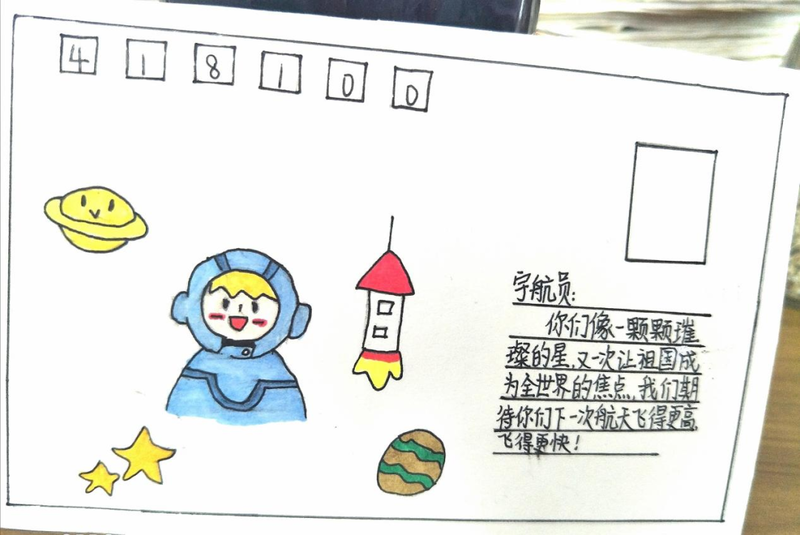 4 1 8 1 0 0
宇航员:
你们像一颗颗璀
璨的星,又一次让祖国成
为全世界的焦点,我们期
待你们下一次航天飞得更高
飞得更快!